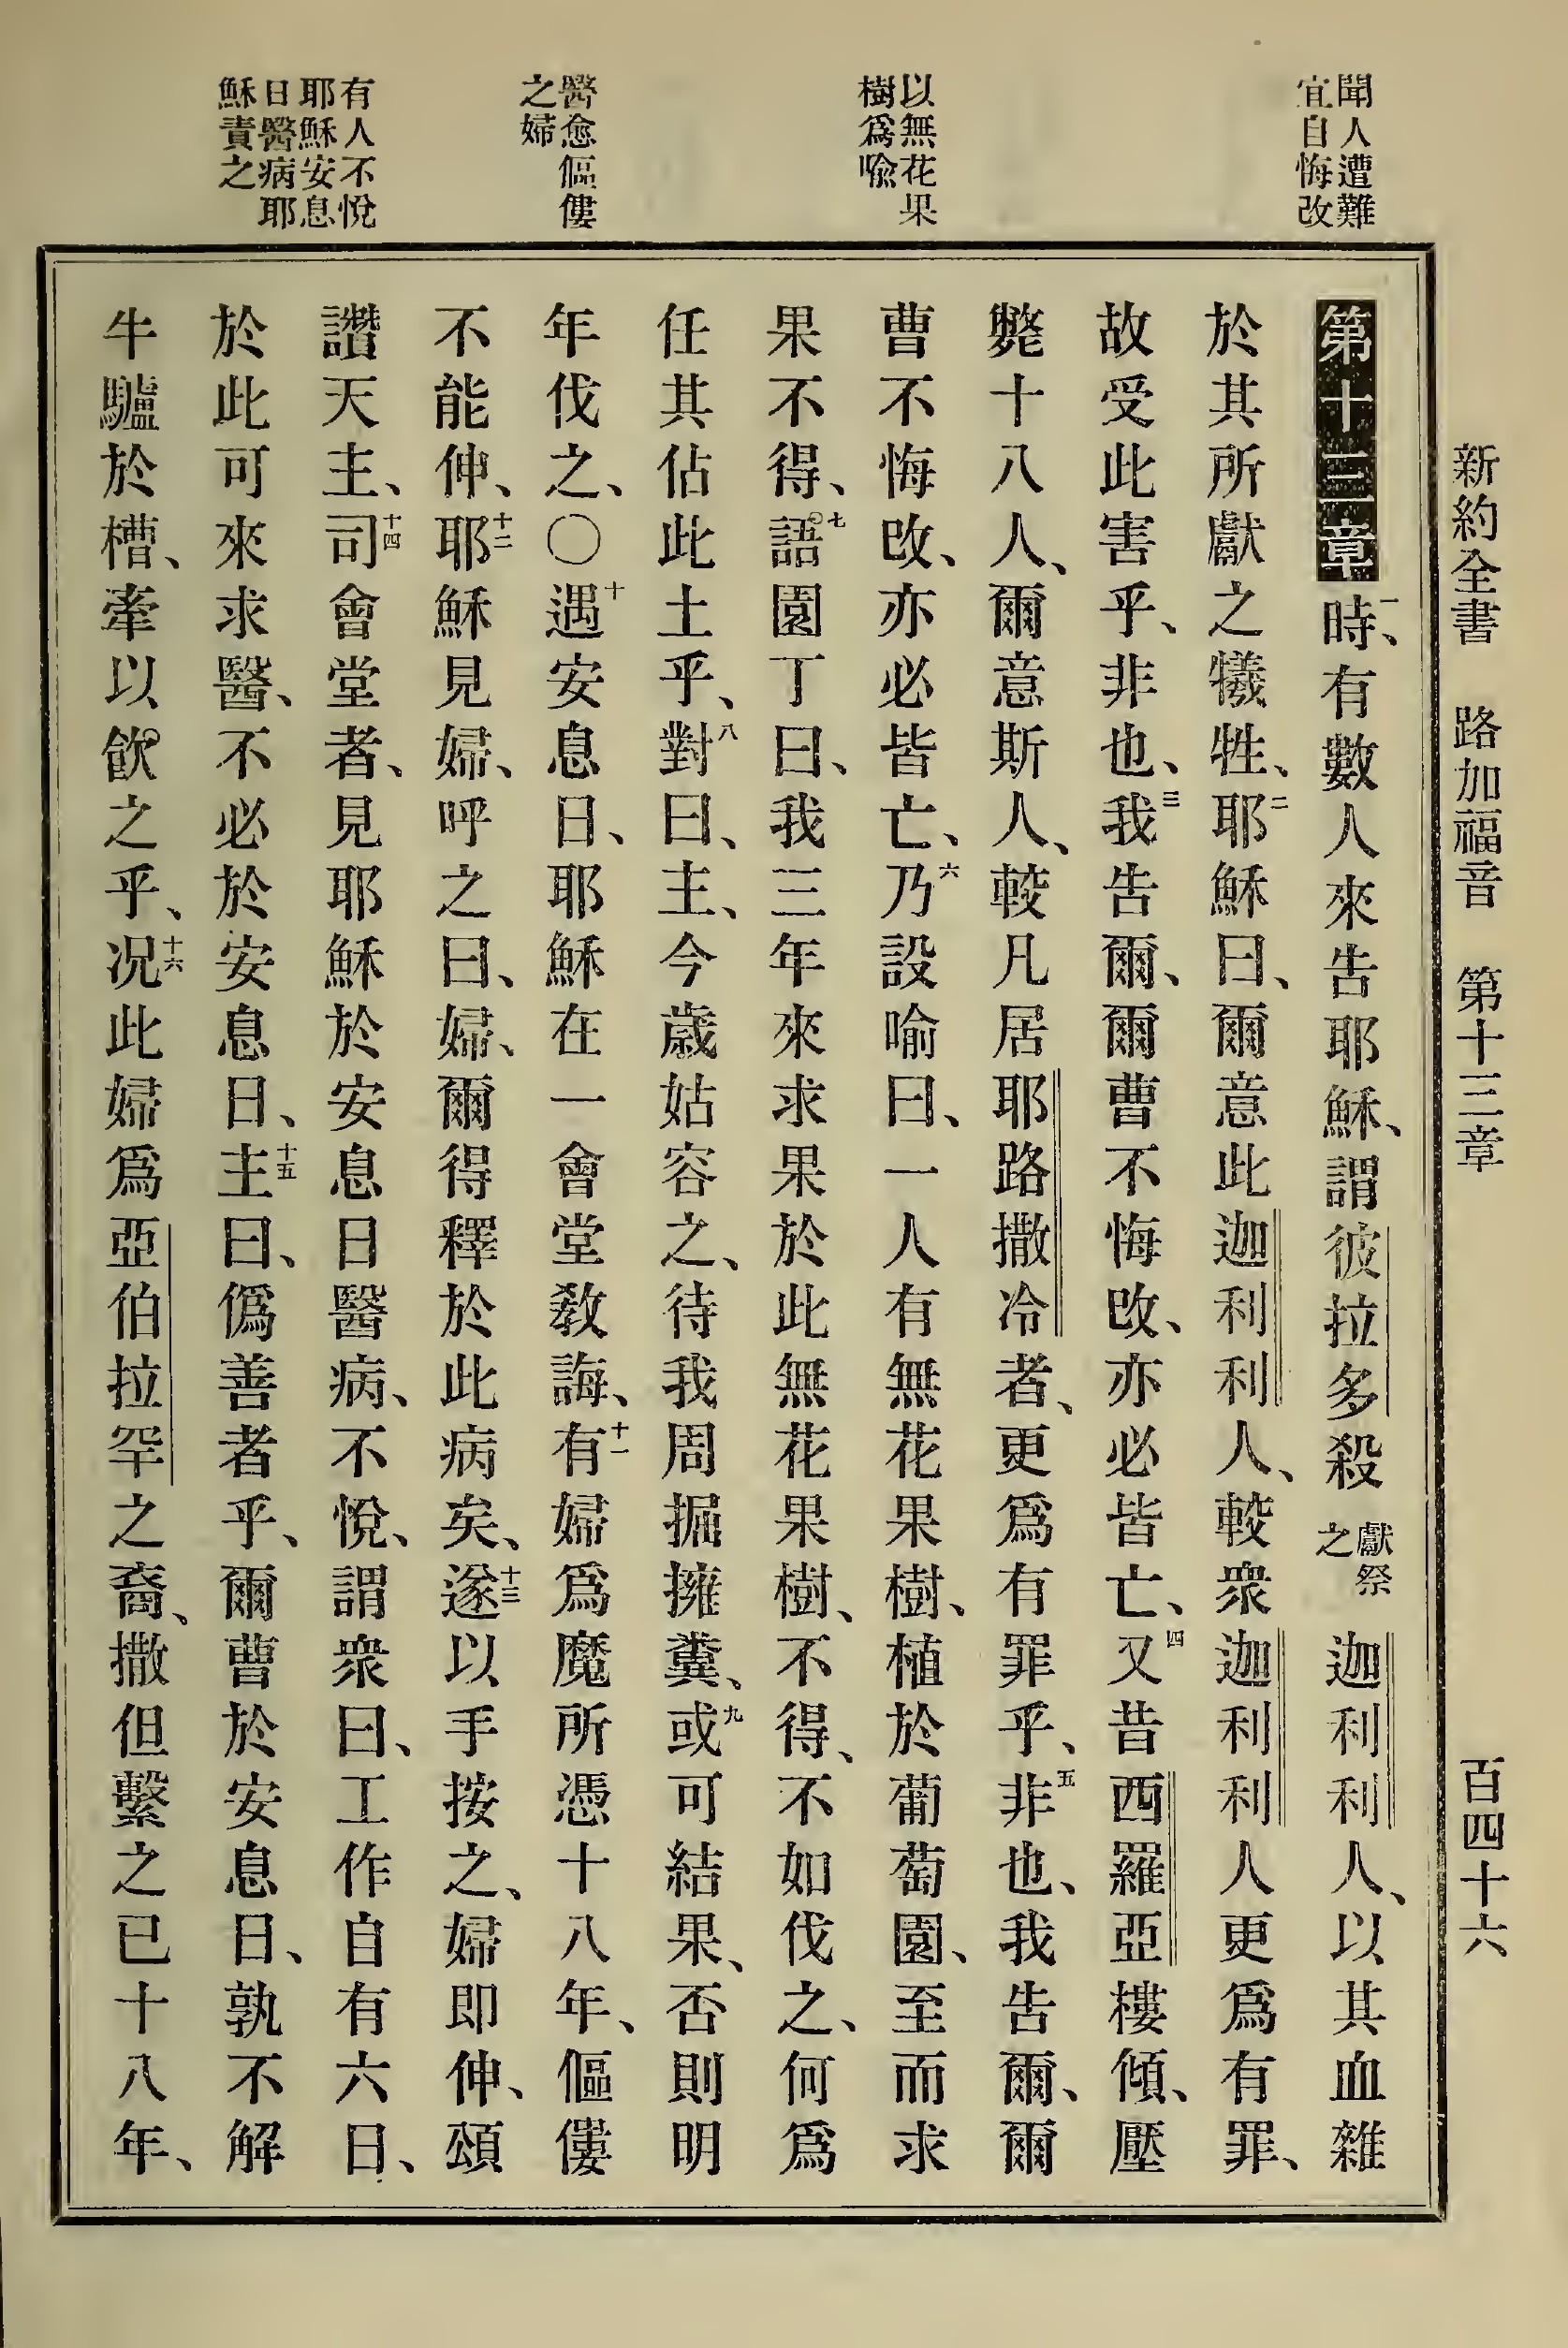 新約全書 路加福音 第十三章 百四十六
聞人遭難
宜自悔改
以無花果
樹爲喩
醫愈傴僂
之婦
有人不悅
耶穌安息
日醫病耶
穌責之
第十三章一時、有數人來告耶穌、謂彼拉多殺獻祭之迦利利人、以其血雜
於其所獻之犧牲、二耶穌曰、爾意此迦利利人、較衆迦利利人更爲有罪、
故受此害乎、非也、三我告爾、爾曹不悔改、亦必皆亡、四又昔西羅亞樓傾、壓
斃十八人、爾意斯人、較凡居耶路撒冷者、更爲有罪乎、五非也、我告爾、爾
曹不悔改、亦必皆亡、六乃設喻曰、一人有無花果樹、植於葡萄園、至而求
果不得、七語園丁曰、我三年來求果於此無花果樹、不得、不如伐之、何爲
任其佔此土乎、八對曰、主、今歲姑容之、待我周掘擁糞、九或可結果、否則明
年伐之、〇十遇安息日、耶穌在一會堂敎誨、十一有婦爲魔所憑十八年、傴僂
不能伸、十二耶穌見婦、呼之曰、婦、爾得釋於此病矣、十三遂以手按之、婦即伸、頌
讚天主、十四司會堂者、見耶穌於安息日醫病、不悅、謂衆曰、工作自有六日、
於此可來求醫、不必於安息日、十五主曰、僞善者乎、爾曹於安息日、孰不解
牛驢於槽、牽以飮之乎、十六况此婦爲亞伯拉罕之裔、撒但繫之已十八年、